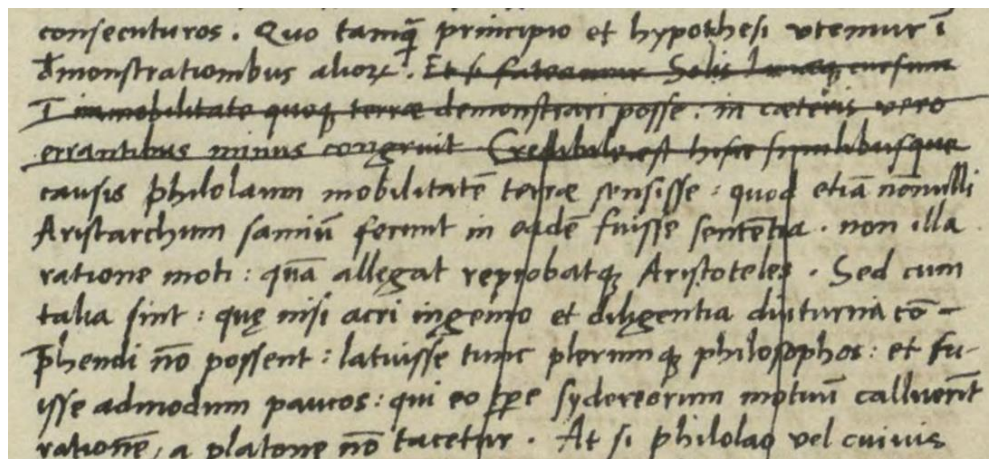 consecuturos . Quo tamq̃ principio et hypothesi vtemur ĩ
demonstrationibus alioꝝ . Et si fateamur Solis Lunæq cursum
ĩ immobilitate quoqꝫ terræ demonstrari posse : in cæteris vero
errantibus minus congruit Credibile est hisce similibusque
causis philolaum mobilitatē terræ sensisse : quod etiā nōnulli
Aristarchum samiū ferunt in eadē fuisse sententia . non illa
ratione moti : quā allegat reprobatqꝫ Aristoteles . Sed cum
talia sint : quę nisi acri ingenio et diligentia diuturna cō-
p̄hendi nō possent : latuisse tunc plerumqꝫ philosophos : et fu-
isse admodum paucos : qui eo tp̄e sydereorum motuū calluerīt
rationē, a platone nō tacetur . At si philolao vel cuiuis